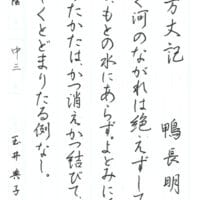 方丈記　鴨長明
く河のながれは絶えずして
もとの水にあらず。よどみに
たかたは、かつ消えかつ結びて、
くとどまりたる例なし。
中三　玉井典子